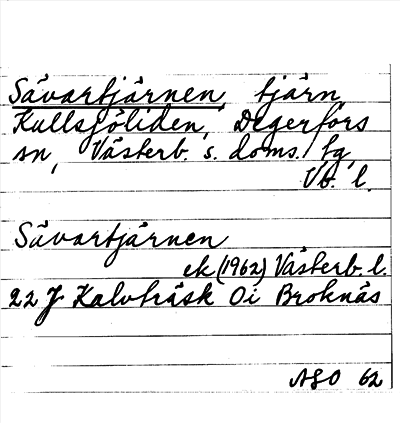 Sävartjärnen, tjärn
Kullsjöliden, Degerfors
sn, Västerb. s. doms. tg,
Vb. l.
Sävartjärnen
ek (1962) Västerb. l.
22 J Kalvträsk 0i Broknäs
ASO 62